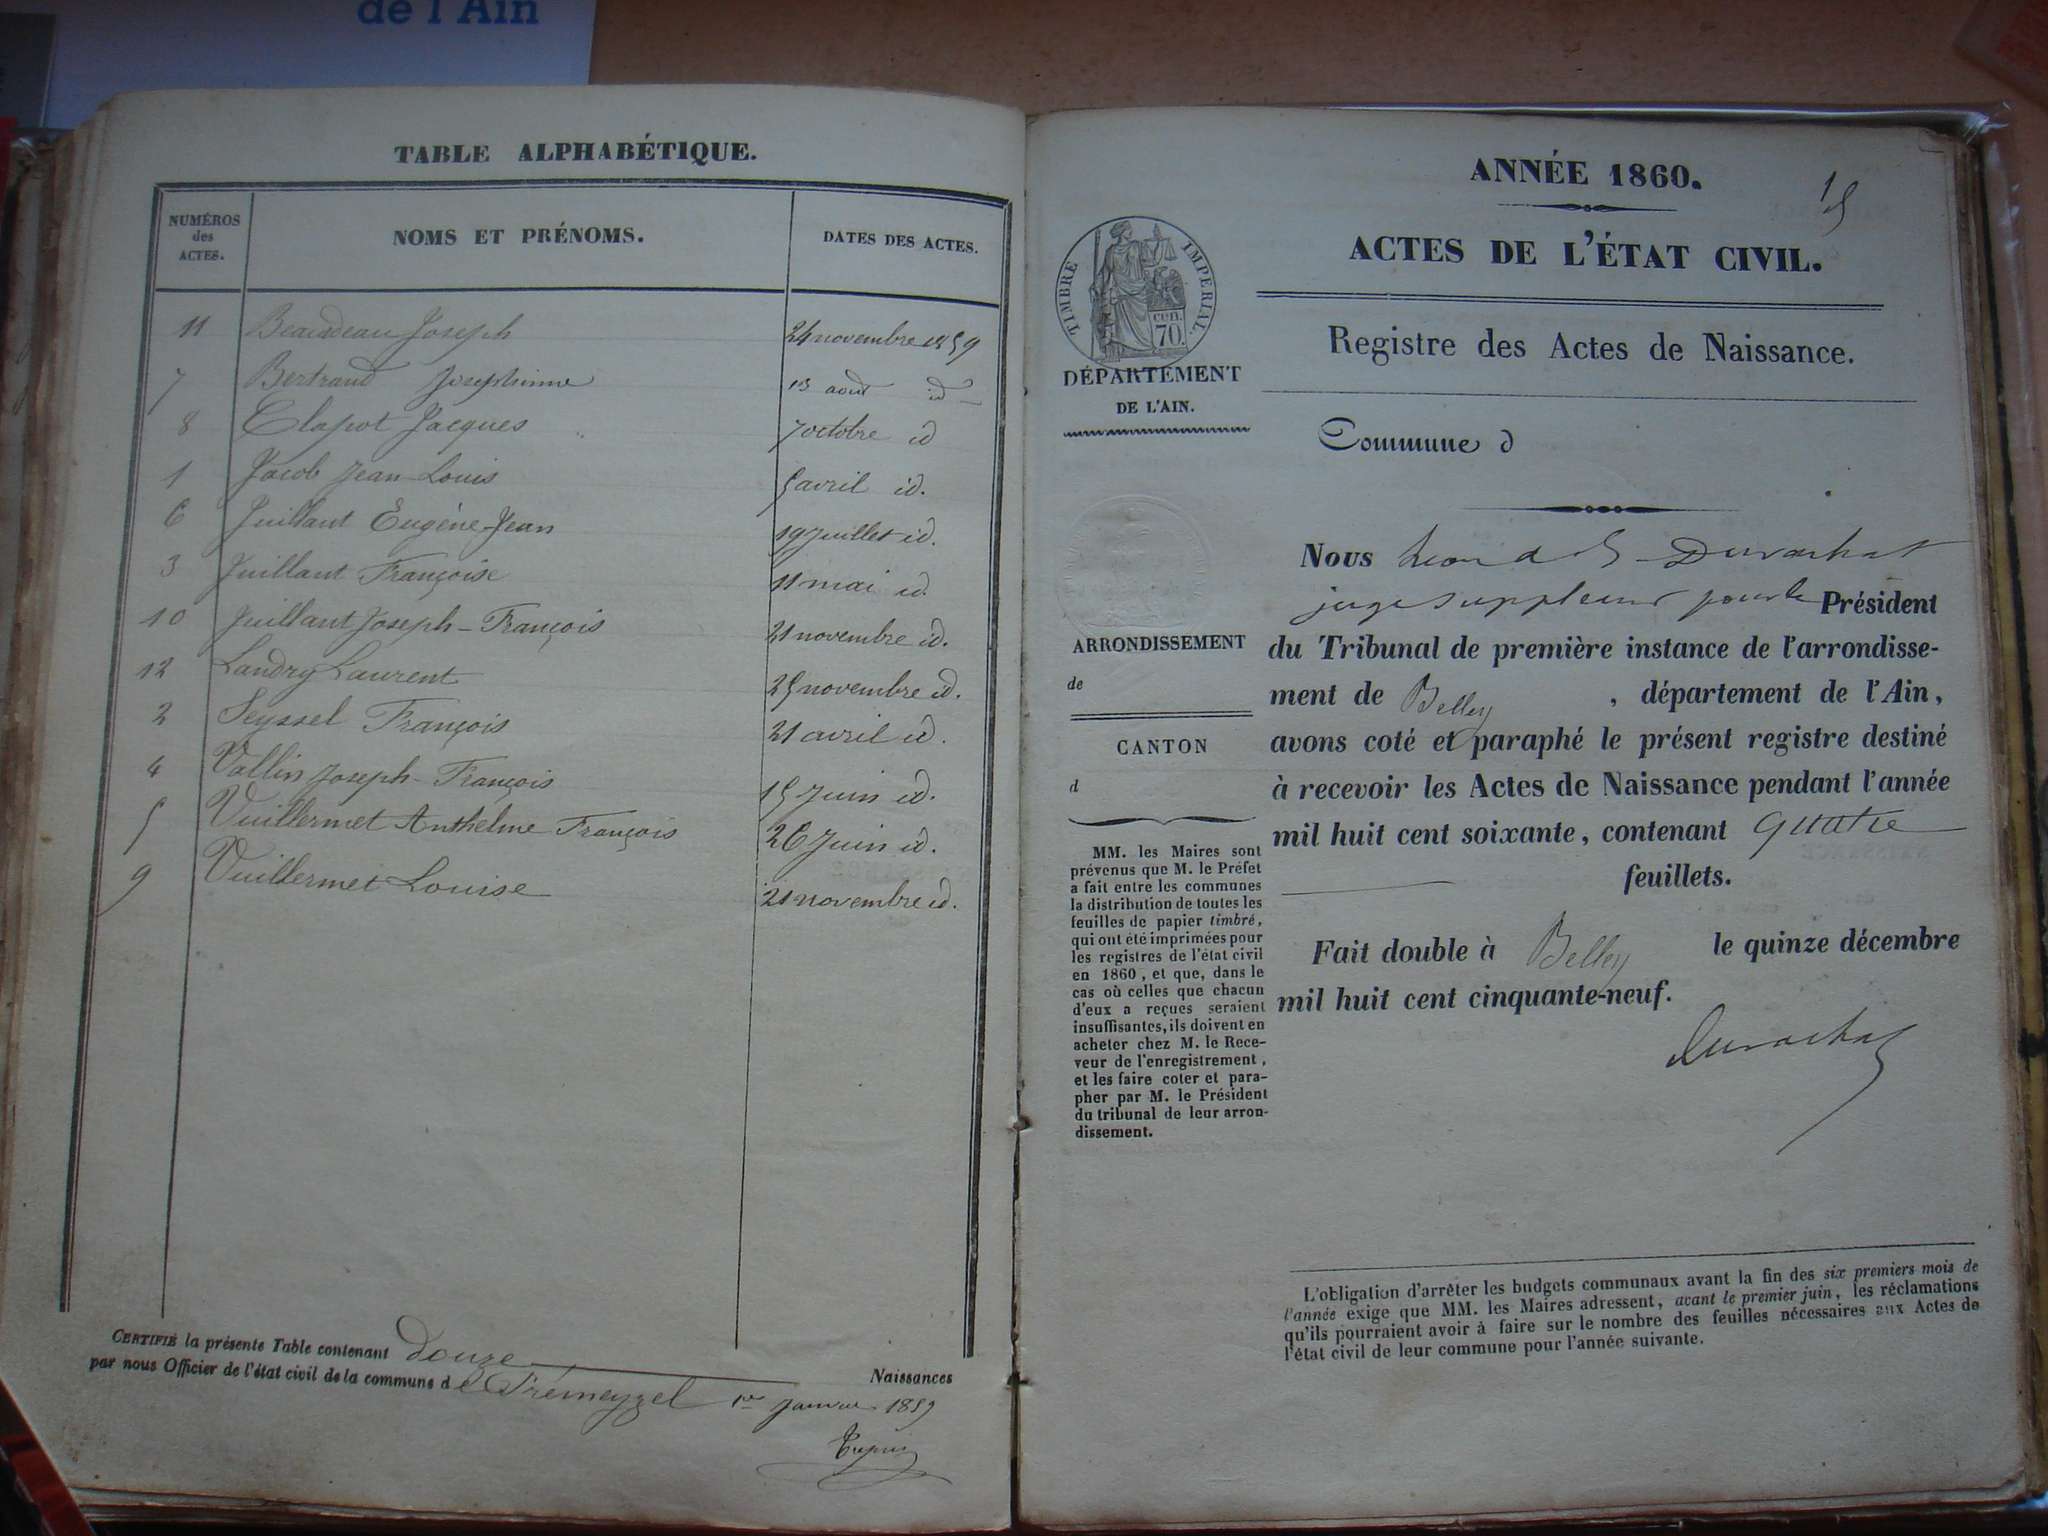 de l'Ain
TABLE ALPHABÉTIQUE.
NUMÉROS des ACTES. NOMS ET PRÉNOMS. DATES DES ACTES.
11 Joseph 24 novembre 1859
7 Bertrand Josephinne 13 aout id
8 Clapot Jacques 7 octobre id
1 Jacob Jean Louis 5 avril id.
6 Juillant Eugène Jean 19 Juillet id.
3 Juillant Françoise 11 mai id.
10 Juillant Joseph-François 21 novembre id.
12 Landry Laurent 25 novembre id.
2 Seyssel François 21 avril id.
4 Vallin Joseph-François 15 Juin id.
5 Vuillermet Anthelme François 26 Juin id.
9 Vuillermet Louise 21 novembre id.
CERTIFIÉ la présente Table contenant douze Naissances
par nous Officier de l'état civil de la commune d 1er Janvier 1859
ANNÉE 1860.
ACTES DE L'ÉTAT CIVIL.
TIMBRE IMPERIAL.
CEN. 70.
Registre des Actes de Naissance.
DÉPARTEMENT
DE L'AIN.
Commune d
Nous
juge suppleant pour le Président
ARRONDISSEMENT
de
CANTON
d
du Tribunal de première instance de l'arrondisse-
ment de Belley, département de l'Ain,
avons coté et paraphé le présent registre destiné
à recevoir les Actes de Naissance pendant l'année
mil huit cent soixante, contenant quatre
feuillets.
Fait double à Belley le quinze décembre
mil huit cent cinquante-neuf.
MM. les Maires sont
prévenus que M. le Préfet
a fait entre les communes
la distribution de toutes les
feuilles de papier timbré,
qui ont été imprimées pour
les registres de l'état civil
en 1860, et que, dans le
cas où celles que chacun
d'eux a reçues seraient
insuffisantes, ils doivent en
acheter chez M. le Rece-
veur de l'enregistrement,
et les faire coter et para-
pher par M. le Président
du tribunal de leur arron-
dissement.
L'obligation d'arrêter les budgets communaux avant la fin des six premiers mois de
l'année exige que MM. les Maires adressent, avant le premier juin, les réclamations
qu'ils pourraient avoir à faire sur le nombre des feuilles nécessaires aux Actes de
l'état civil de leur commune pour l'année suivante.